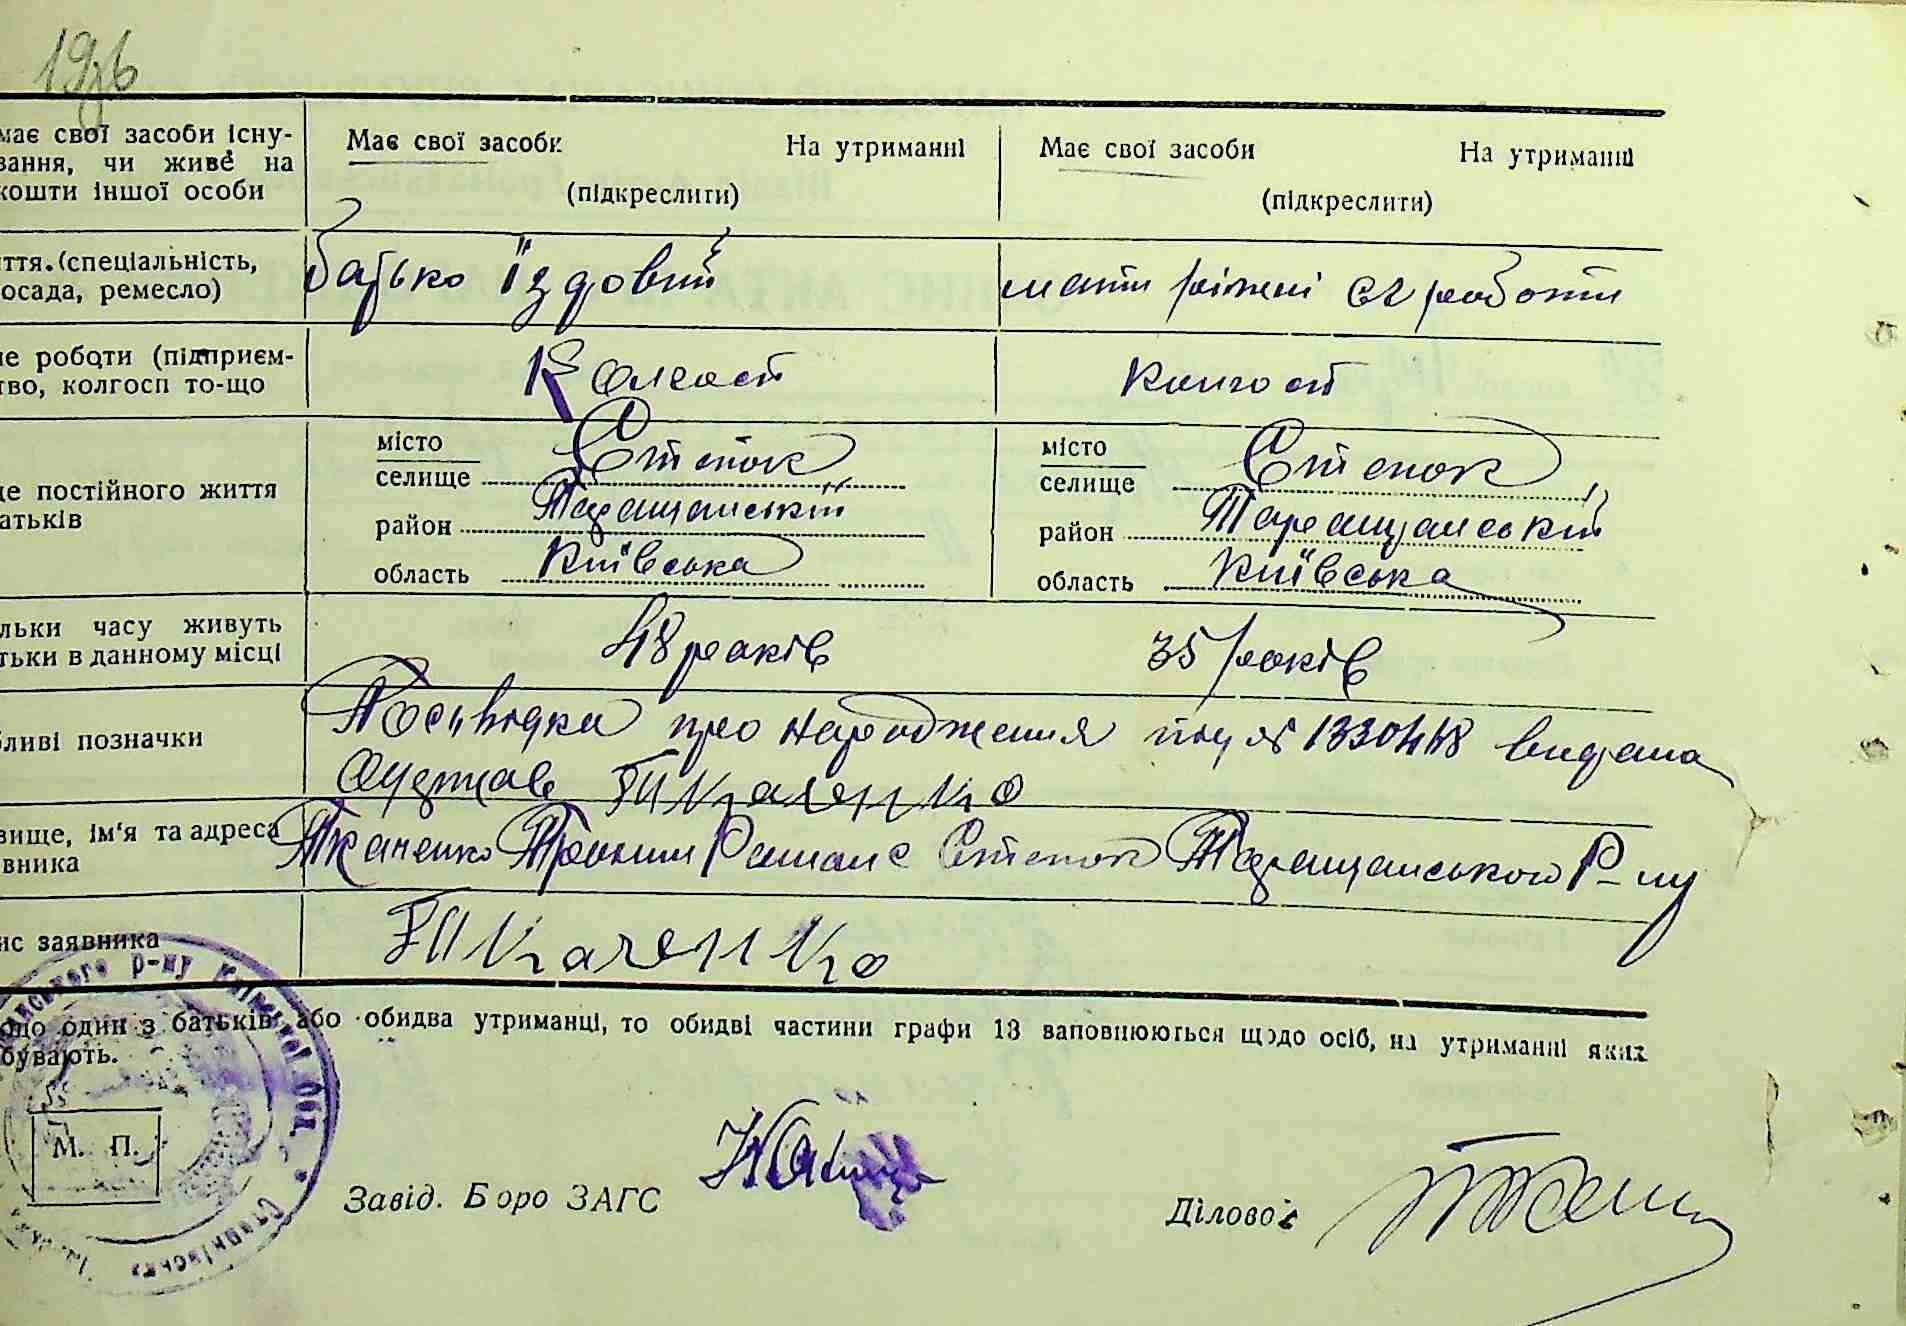 має свої засоби існу-
вання, чи живе на
кошти іншої особи
Має свої засоби На утриманні
(підкреслити)
Має свої засоби На утриманні
(підкреслити)
ття. (спеціальність,
осада, ремесло)
батько їздовий
мати ріжні с/г роботи
це роботи (підприєм-
тво, колгосп то-що
Колгосп
Колгосп
це постійного життя
атьків
місто
селище Степок
район Таращанський
область Київська
місто
селище Степок
район Таращанський
область Київська
льки часу живуть
тьки в данному місці
48 років
35 років
бливі позначки
Посвідка про народження під № 1330448 видана
одержав Ткаченко
вище, ім'я та адреса
вника
Ткаченко Трохим Роман с Степок Таращанського Р-ну
ис заявника
Ткаченко
що один з батьків або обидва утриманці, то обидві частини графи 13 заповнюються щодо осіб, на утриманні яких
бувають.
М. П.
Завід. Бюро ЗАГС
Діловод